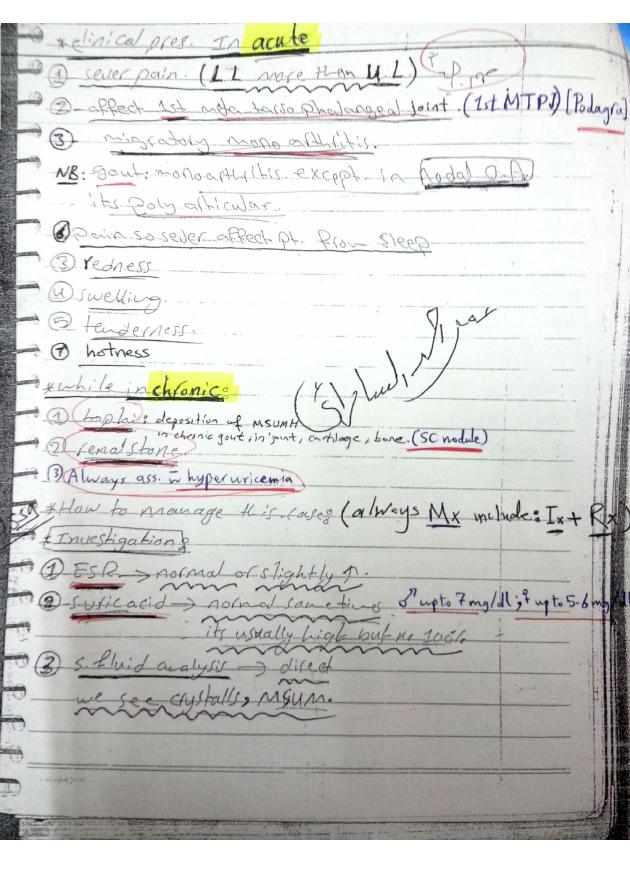 *clinical pres. In acute
① sever pain. (LL more than U.L)
② affect 1st meta tarsophalangeal joint. (1st MTPJ) [Podagra]
③ migratory mono arthritis.
NB: gout: monoarthritis. except in Nodal O.A
its poly articular.
pain so sever affect pt. from sleep
③ redness
④ swelling
⑤ tenderness.
⑦ hotness
*while in chronic:
① tophi: deposition of MSUMH
in chronic gout, in joint, cartilage, bone. (SC nodule)
② renal stone.
③ Always ass. w hyperuricemia
*How to manage this cases (always Mx include: Ix + Rx)
*Investigation:
① ESR → normal or slightly ↑.
② s.uric acid → normal sometimes ♂ upto 7 mg/dl; ♀ upto 5-6 mg/dl
its usually high but no 100%
③ s. fluid analysis → direct
we see crystalls, MSUM.